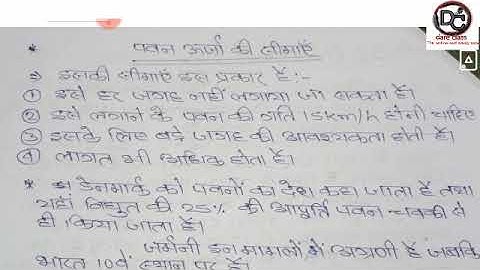 Dc
dare class
* पवन ऊर्जा की सीमाएँ
⇒ इसकी सीमाएँ इस प्रकार हैं:-
① इसे हर जगह नहीं लगाया जा सकता है।
② इसे लगाने के पवन की गति 15km/h होनी चाहिए
③ इसके लिए बड़े जगह की आवश्यकता होती है।
④ लागत भी अधिक होता है।
* डेनमार्क को पवनों का देश कहा जाता है तथा
यहाँ विद्युत की 25% की आपूर्ति पवन चक्की से
ही किया जाता है।
जर्मनी इन मामलों में अग्रणी है जबकि
भारत 10वें स्थान पर है।